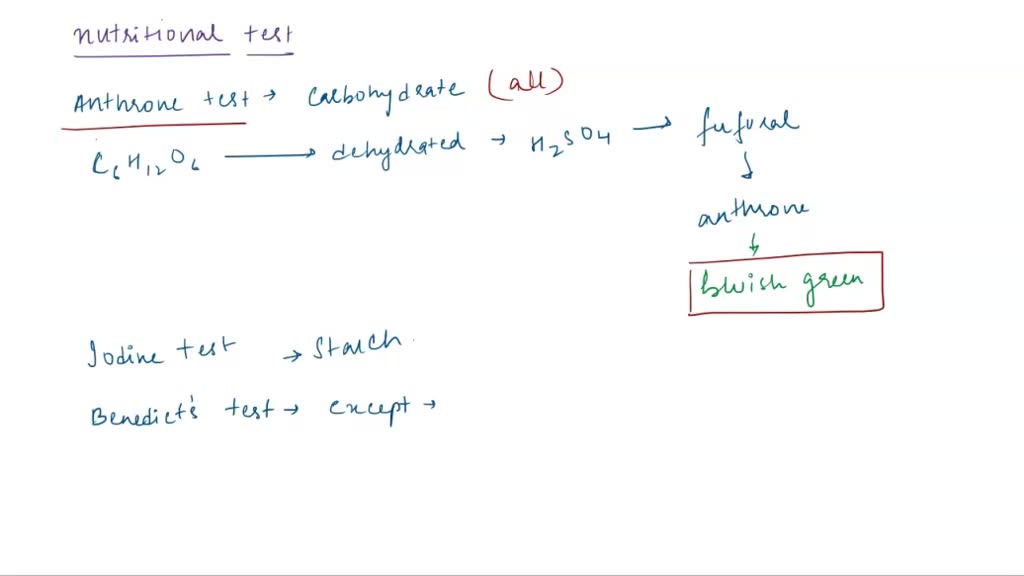 nutritional test
Anthrone test → Carbohydrate (all)
C6H12O6 → dehydrated → H2SO4 → fufural
↓
anthrone
↓
bluish green
Iodine test → Starch
Benedict's test → except →